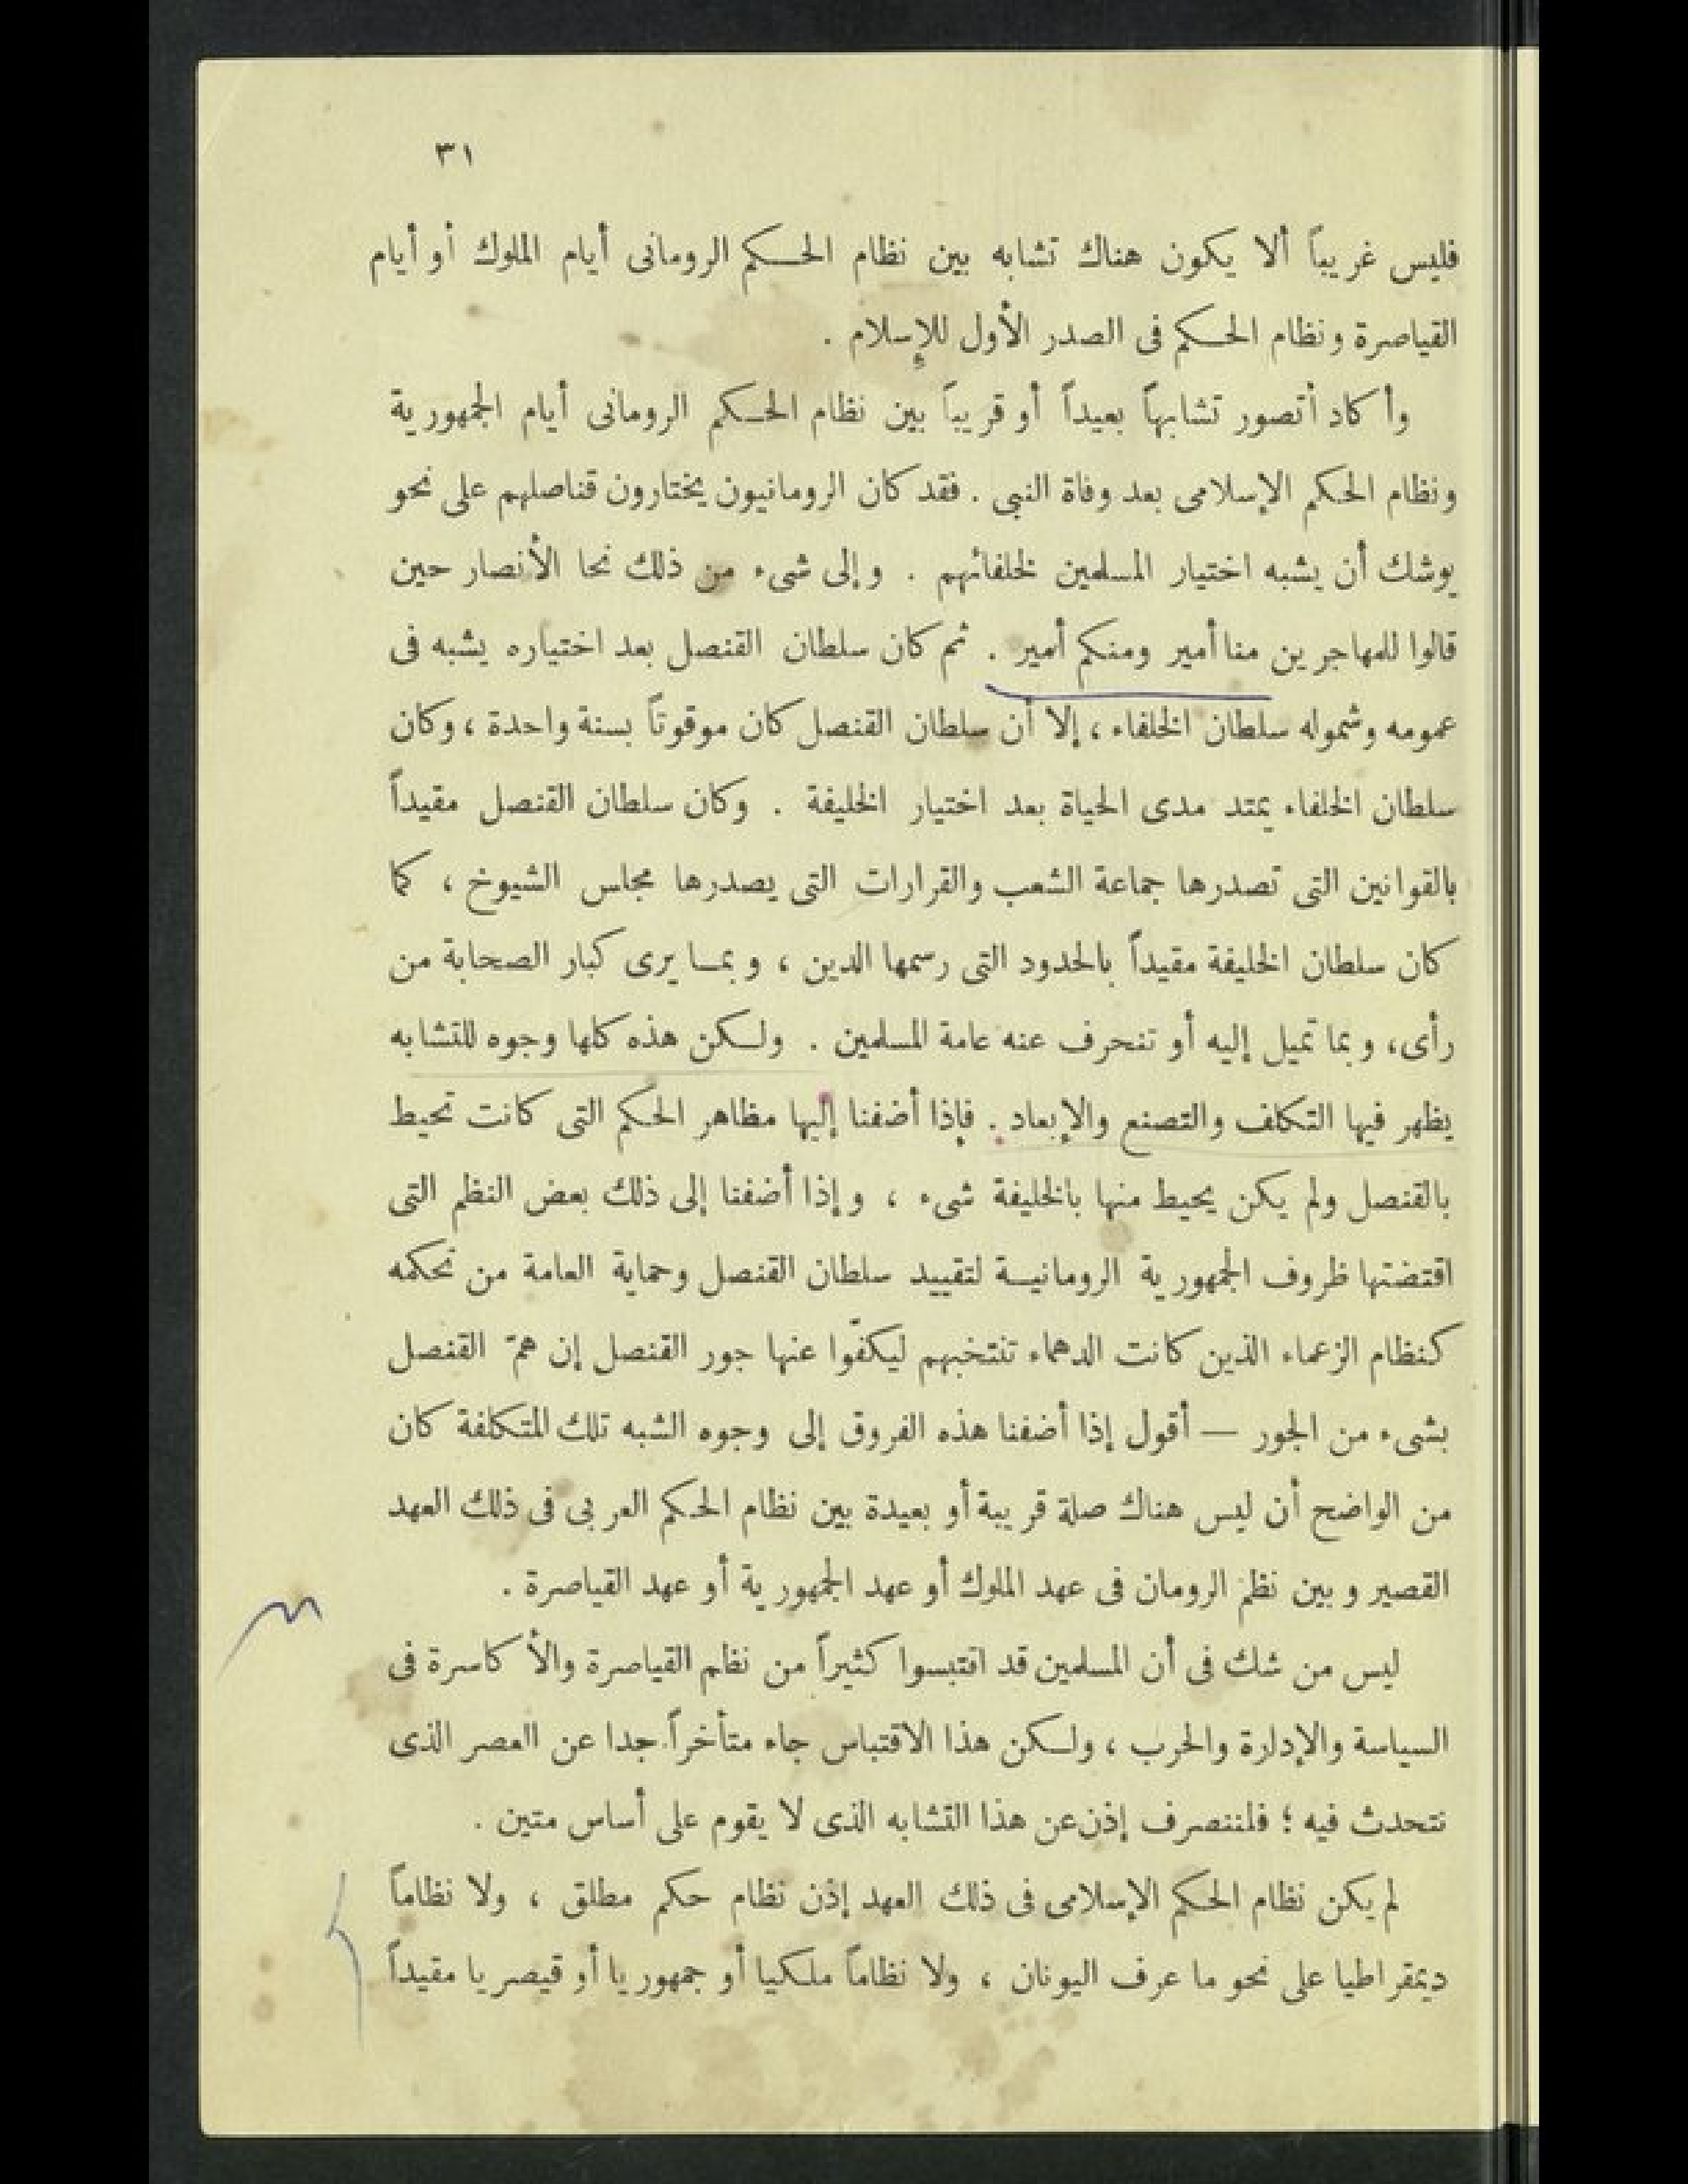 ٣١
فليس غريباً ألا يكون هناك تشابه بين نظام الحكم الرومانى أيام الملوك أو أيام
القياصرة ونظام الحكم فى الصدر الأول للإسلام .
وأكاد أتصور تشابهاً بعيداً أو قريباً بين نظام الحكم الرومانى أيام الجمهورية
ونظام الحكم الإسلامى بعد وفاة النبى . فقد كان الرومانيون يختارون قناصلهم على نحو
يوشك أن يشبه اختيار المسلمين لخلفائهم . وإلى شىء من ذلك نحا الأنصار حين
قالوا للمهاجرين منا أمير ومنكم أمير . ثم كان سلطان القنصل بعد اختياره يشبه فى
عمومه وشموله سلطان الخلفاء ، إلا أن سلطان القنصل كان موقوتاً بسنة واحدة ، وكان
سلطان الخلفاء يمتد مدى الحياة بعد اختيار الخليفة . وكان سلطان القنصل مقيداً
بالقوانين التى تصدرها جماعة الشعب والقرارات التى يصدرها مجلس الشيوخ ، كما
كان سلطان الخليفة مقيداً بالحدود التى رسمها الدين ، وبما يرى كبار الصحابة من
رأى، وبما تميل إليه أو تنحرف عنه عامة المسلمين . ولكن هذه كلها وجوه للتشابه
يظهر فيها التكلف والتصنع والإبعاد . فإذا أضفنا إليها مظاهر الحكم التى كانت تحيط
بالقنصل ولم يكن يحيط منها بالخليفة شىء ، وإذا أضفنا إلى ذلك بعض النظم التى
اقتضتها ظروف الجمهورية الرومانية لتقييد سلطان القنصل وحماية العامة من تحكمه
كنظام الزعماء الذين كانت الدهماء تنتخبهم ليكفّوا عنها جور القنصل إن همّ القنصل
بشىء من الجور — أقول إذا أضفنا هذه الفروق إلى وجوه الشبه تلك المتكلفة كان
من الواضح أن ليس هناك صلة قريبة أو بعيدة بين نظام الحكم العربى فى ذلك العهد
القصير وبين نظم الرومان فى عهد الملوك أو عهد الجمهورية أو عهد القياصرة .
ليس من شك فى أن المسلمين قد اقتبسوا كثيراً من نظم القياصرة والأكاسرة فى
السياسة والإدارة والحرب ، ولكن هذا الاقتباس جاء متأخراً جدا عن العصر الذى
نتحدث فيه ؛ فلننصرف إذن عن هذا التشابه الذى لا يقوم على أساس متين .
لم يكن نظام الحكم الإسلامى فى ذلك العهد إذن نظام حكم مطلق ، ولا نظاماً
ديمقراطيا على نحو ما عرف اليونان ، ولا نظاماً ملكيا أو جمهوريا أو قيصريا مقيداً